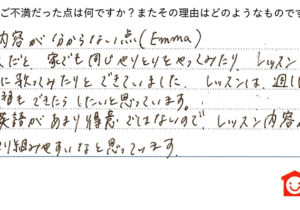 ご不満だった点は何ですか？またその理由はどのようなもので
内容が分からない点(Emma)
だと、家でも同じやりとりをやってみたり、レッスン
に歌ってみたりとできていました。レッスンは、週1
もできたらしたいと思っています。
英語があまり得意ではないので、レッスン内容
り組みやすいなと思っています。